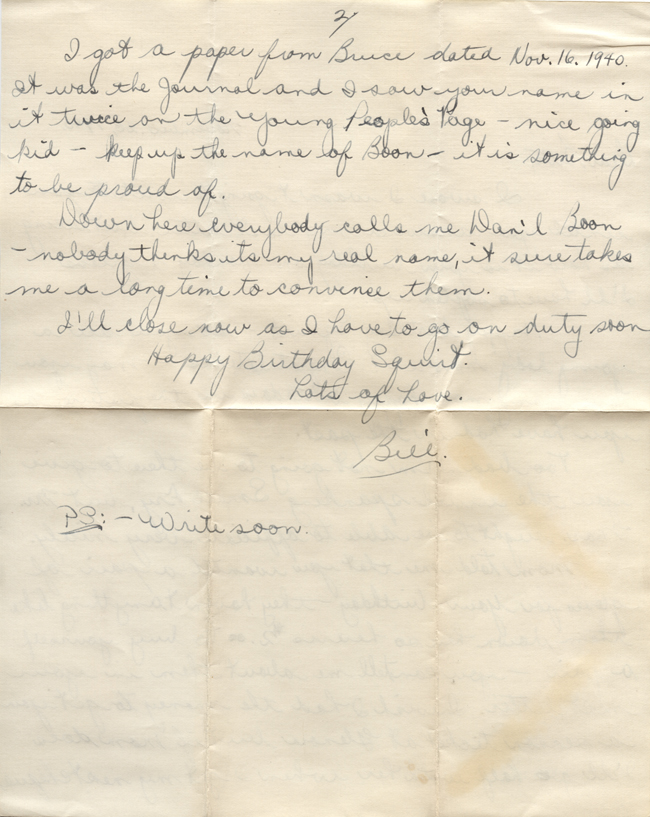 2/
I got a paper from Bruce dated Nov. 16, 1940.
It was the Journal and I saw your name in
it twice on the Young People's Page - nice going
kid - keep up the name of Boon - it is something
to be proud of.
Down here everybody calls me Dan'l Boon
- nobody thinks its my real name, it sure takes
me a long time to convince them.
I'll close now as I have to go on duty soon
Happy Birthday Squirt.
Lots of Love.
Bill.
PS: - Write soon.